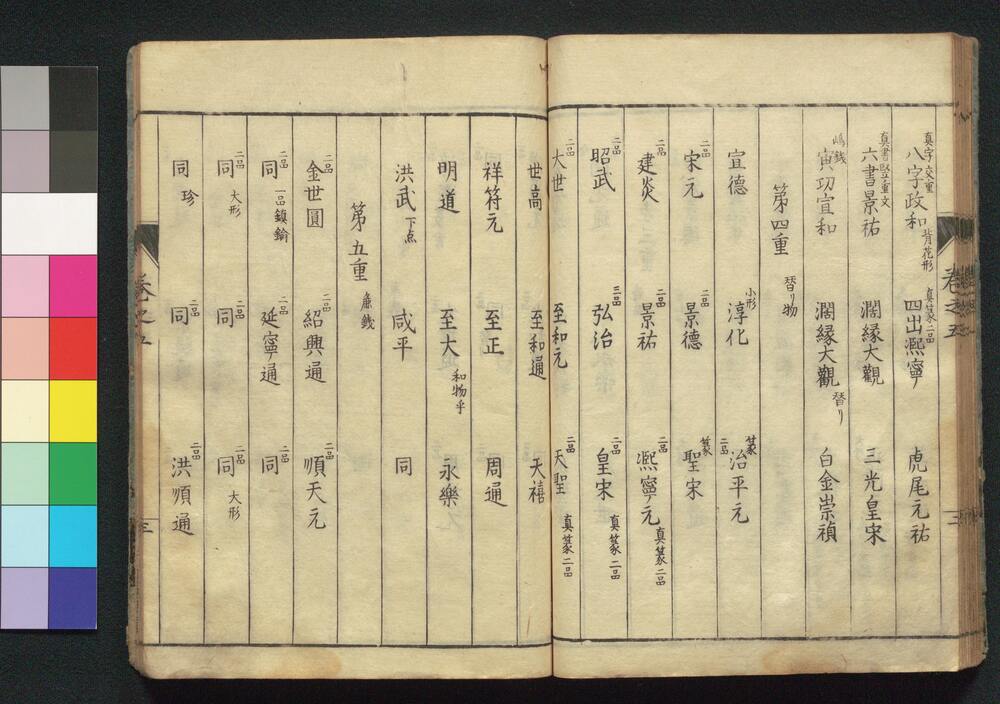 真字交重 八字政和 背花形 真篆二品 四出凞寧 虎尾元祐
真書竪重文 六書景祐 濶縁大觀 三光皇宋
嶋錢 寅切宣和 濶縁大觀 替リ 白金崇禎
第四重 替リ物
宣德 小形 淳化 篆二品 治平元
二品 宋元 二品 景德 篆 聖宋
二品 建炎 二品 景祐 二品 凞寧元 真篆二品
二品 昭武 三品 弘治 二品 皇宋 真篆二品
二品 大世 至和元 二品 天聖 真篆二品
世高 至和通 天禧
祥符元 至正 周通
明道 至大 和物乎 永樂
洪武 下点 咸平 同
第五重 麁錢
二品 金世圓 二品 紹興通 二品 順天元
二品 同 一品鎮鍮 二品 延寧通 二品 同
二品 同 大形 二品 同 二品 同 大形
同 珍 二品 同 二品 洪順通
卷之五 三
卷之五 三